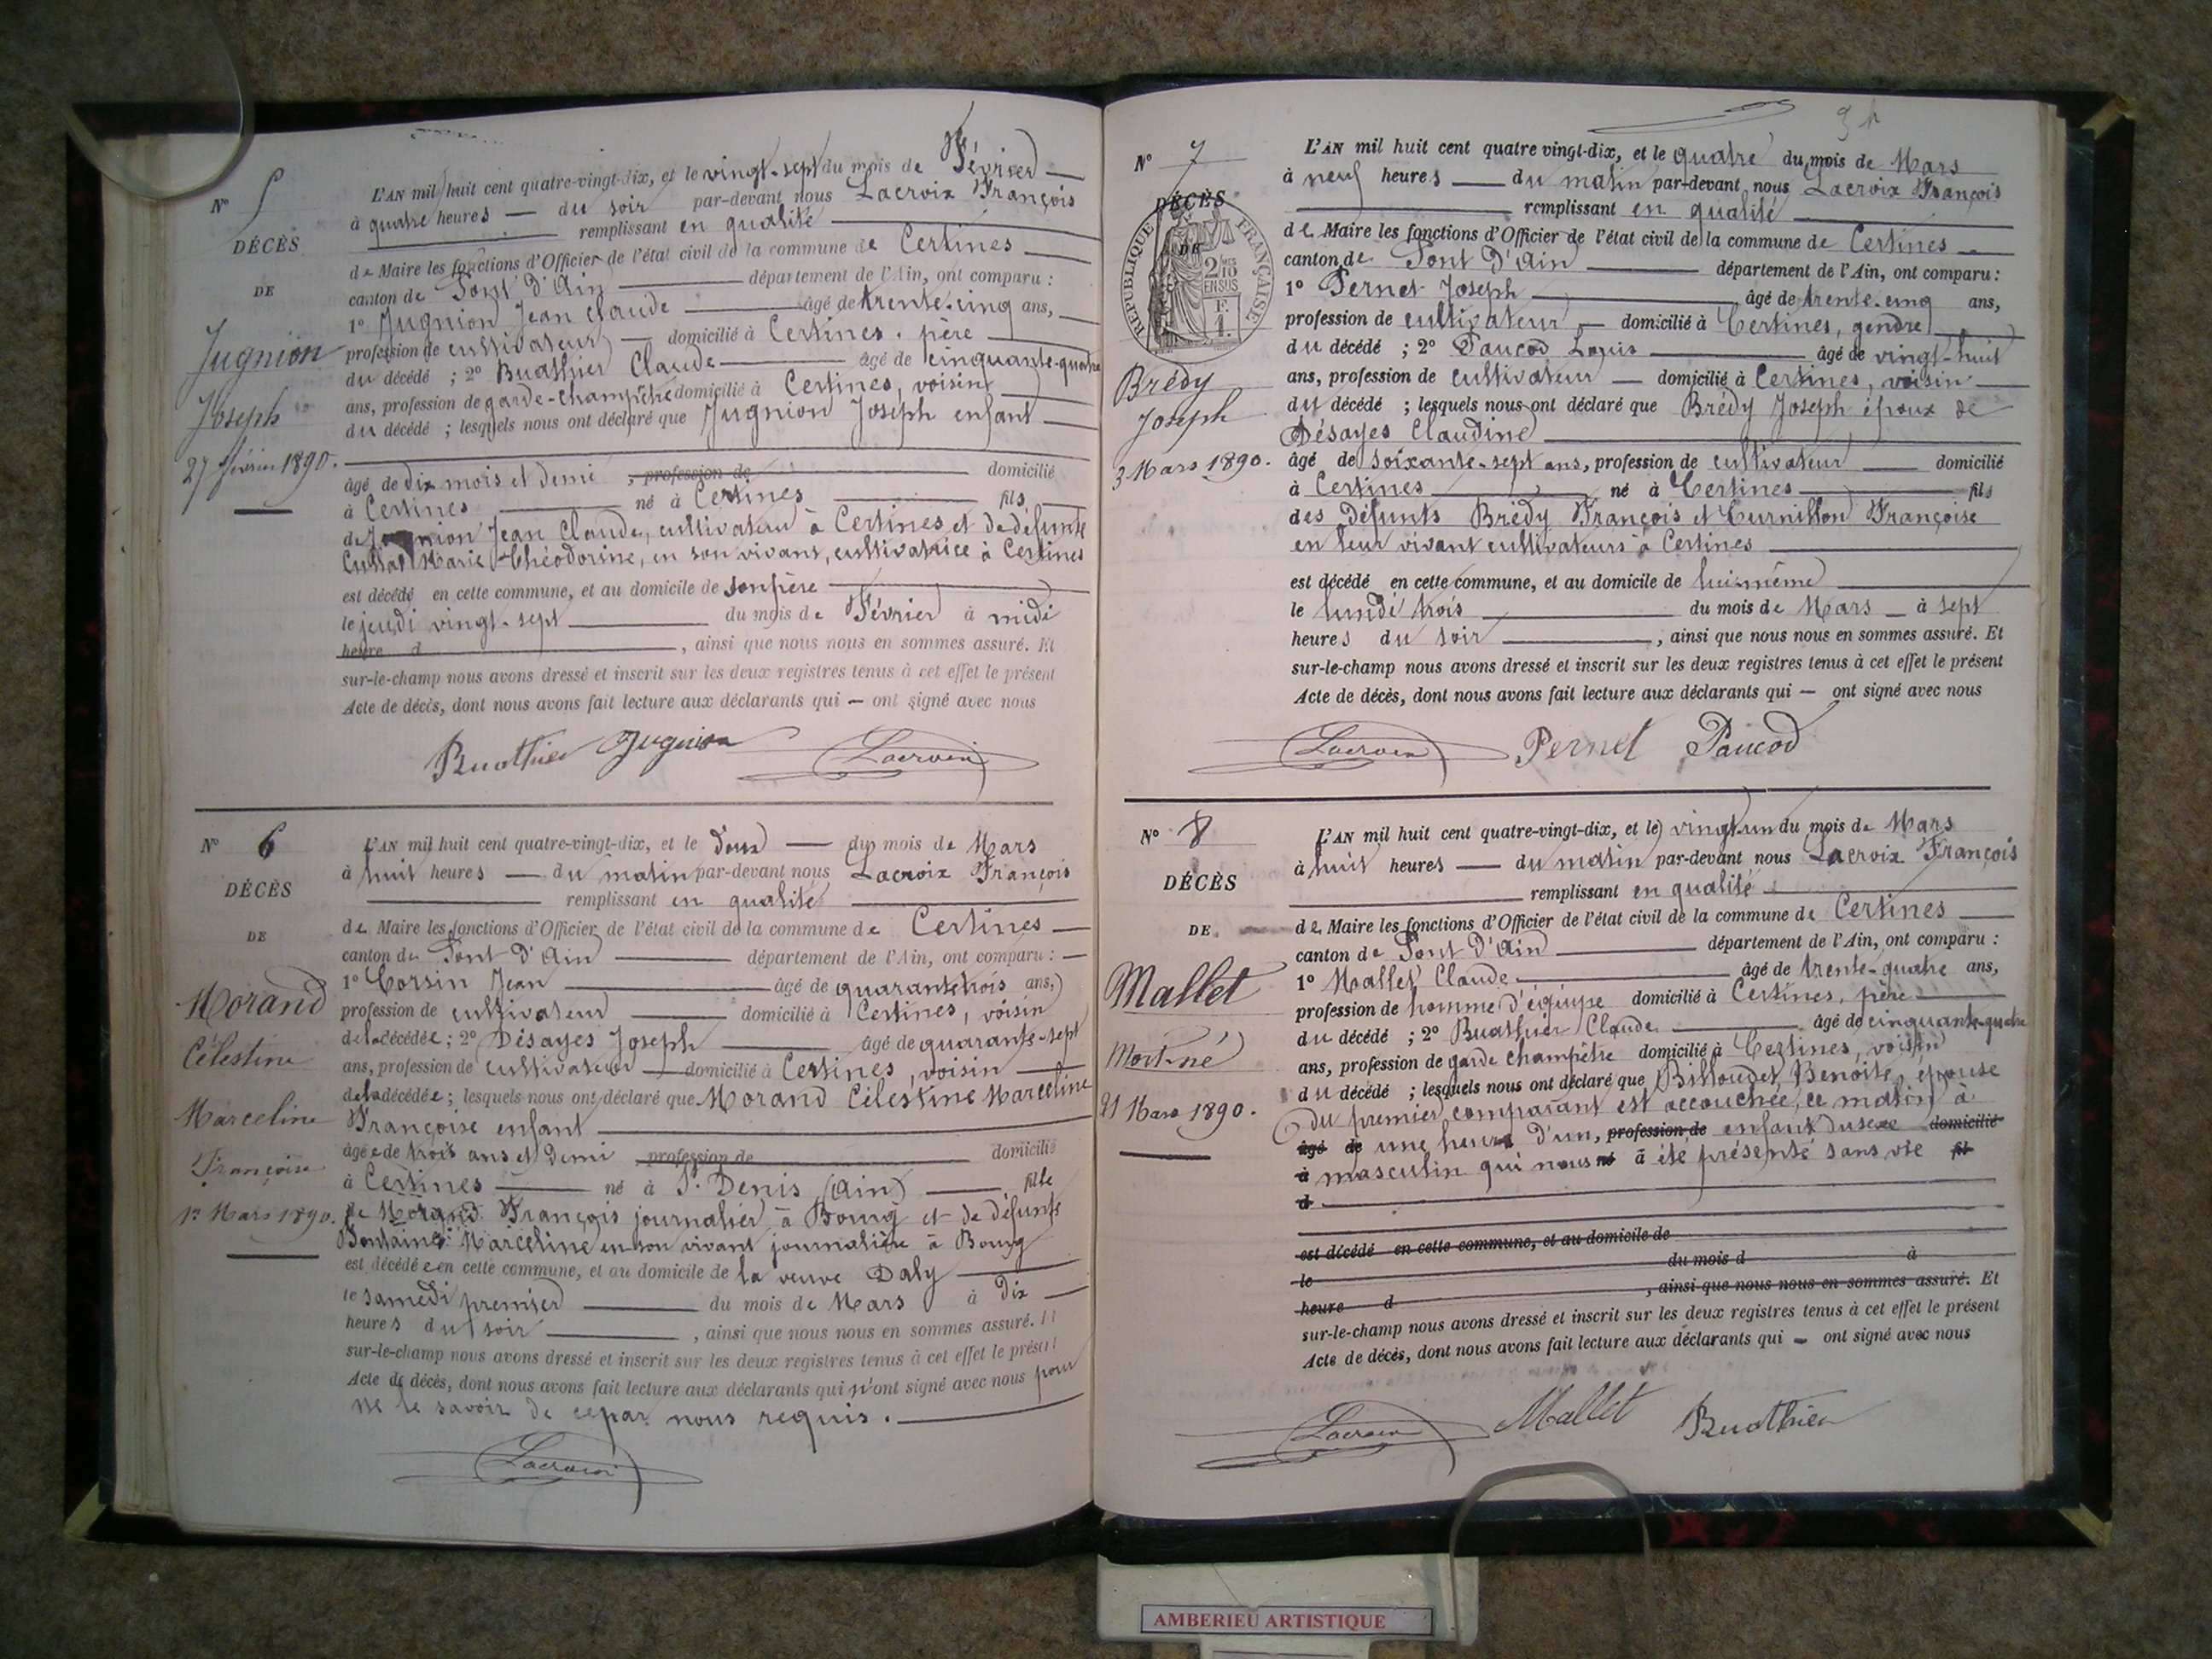 N° 5
DÉCÈS
DE
Jugnion
Joseph
27 février 1890.
L'AN mil huit cent quatre-vingt-dix, et le vingt-sept du mois de Février
à quatre heures du soir par-devant nous Lacroix François
remplissant en qualité
de Maire les fonctions d'Officier de l'état civil de la commune de Certines
canton de Pont d'Ain département de l'Ain, ont comparu :
1° Jugnion Jean Claude âgé de trente-cinq ans,
profession de cultivateur domicilié à Certines, père
du décédé ; 2° Buathier Claude âgé de cinquante-quatre
ans, profession de garde-champêtre domicilié à Certines, voisin
du décédé ; lesquels nous ont déclaré que Jugnion Joseph enfant
âgé de dix mois et demi , profession de domicilié
à Certines né à Certines fils
de Jugnion Jean Claude, cultivateur à Certines et de défunte
Marie Théodorine, en son vivant, cultivatrice à Certines
est décédé en cette commune, et au domicile de son père
le jeudi vingt-sept du mois de Février à midi
heure d , ainsi que nous nous en sommes assuré. Et
sur-le-champ nous avons dressé et inscrit sur les deux registres tenus à cet effet le présent
Acte de décès, dont nous avons fait lecture aux déclarants qui — ont signé avec nous
Buathier Jugnion Lacroix
N° 6
DÉCÈS
DE
Morand
Célestine
Marceline
Françoise
1er Mars 1890.
L'AN mil huit cent quatre-vingt-dix, et le deux du mois de Mars
à huit heures du matin par-devant nous Lacroix François
remplissant en qualité
de Maire les fonctions d'Officier de l'état civil de la commune de Certines
canton de Pont d'Ain département de l'Ain, ont comparu :
1° Corsin Jean âgé de quarante trois ans,
profession de cultivateur domicilié à Certines, voisin
de la décédée ; 2° Désayes Joseph âgé de quarante-sept
ans, profession de cultivateur domicilié à Certines, voisin
de la décédée ; lesquels nous ont déclaré que Morand Célestine Marceline
Françoise enfant
âgée de trois ans et demi profession de domicilié
à Certines né à St Denis (Ain) fille
de Morand François journalier à Bourg et de défunte
Marceline en son vivant journalière à Bourg
est décédée en cette commune, et au domicile de la veuve Daly
le samedi premier du mois de Mars à dix
heures du soir , ainsi que nous nous en sommes assuré. Et
sur-le-champ nous avons dressé et inscrit sur les deux registres tenus à cet effet le présent
Acte de décès, dont nous avons fait lecture aux déclarants qui n'ont signé avec nous pour
ne le savoir de ce par nous requis.
Lacroix
N° 7
DÉCÈS
DE
RÉPUBLIQUE FRANÇAISE
2/10 EN SUS
F. 1.
Brédy
Joseph
3 Mars 1890.
L'AN mil huit cent quatre vingt-dix, et le quatre du mois de Mars
à neuf heures du matin par-devant nous Lacroix François
remplissant en qualité
de Maire les fonctions d'Officier de l'état civil de la commune de Certines
canton de Pont d'Ain département de l'Ain, ont comparu :
1° Pernet Joseph âgé de trente-cinq ans,
profession de cultivateur domicilié à Certines, gendre
du décédé ; 2° Paucod Louis âgé de vingt-huit
ans, profession de cultivateur domicilié à Certines, voisin
du décédé ; lesquels nous ont déclaré que Brédy Joseph époux de
Désayes Claudine
âgé de soixante-sept ans, profession de cultivateur domicilié
à Certines né à Certines fils
des défunts Brédy François et Curnillon Françoise
en leur vivant cultivateurs à Certines
est décédé en cette commune, et au domicile de lui-même
le lundi trois du mois de Mars à sept
heures du soir , ainsi que nous nous en sommes assuré. Et
sur-le-champ nous avons dressé et inscrit sur les deux registres tenus à cet effet le présent
Acte de décès, dont nous avons fait lecture aux déclarants qui — ont signé avec nous
Lacroix Pernet Paucod
N° 8
DÉCÈS
DE
Mallet
Mort-né
21 Mars 1890.
L'AN mil huit cent quatre-vingt-dix, et le vingt-un du mois de Mars
à huit heures du matin par-devant nous Lacroix François
remplissant en qualité
de Maire les fonctions d'Officier de l'état civil de la commune de Certines
canton de Pont d'Ain département de l'Ain, ont comparu :
1° Mallet Claude âgé de trente-quatre ans,
profession de homme d'équipe domicilié à Certines, père
du décédé ; 2° Buathier Claude âgé de cinquante-quatre
ans, profession de garde champêtre domicilié à Certines, voisin
du décédé ; lesquels nous ont déclaré que Billoudet Benoite, épouse
du premier comparant est accouchée, ce matin à
âgé de une heure d'un, profession de enfant du sexe domicilié
à masculin qui nous né a été présenté sans vie fil
d
est décédé en cette commune, et au domicile de
le du mois d à
heure d , ainsi que nous nous en sommes assuré. Et
sur-le-champ nous avons dressé et inscrit sur les deux registres tenus à cet effet le présent
Acte de décès, dont nous avons fait lecture aux déclarants qui — ont signé avec nous
Lacroix Mallet Buathier
AMBERIEU ARTISTIQUE